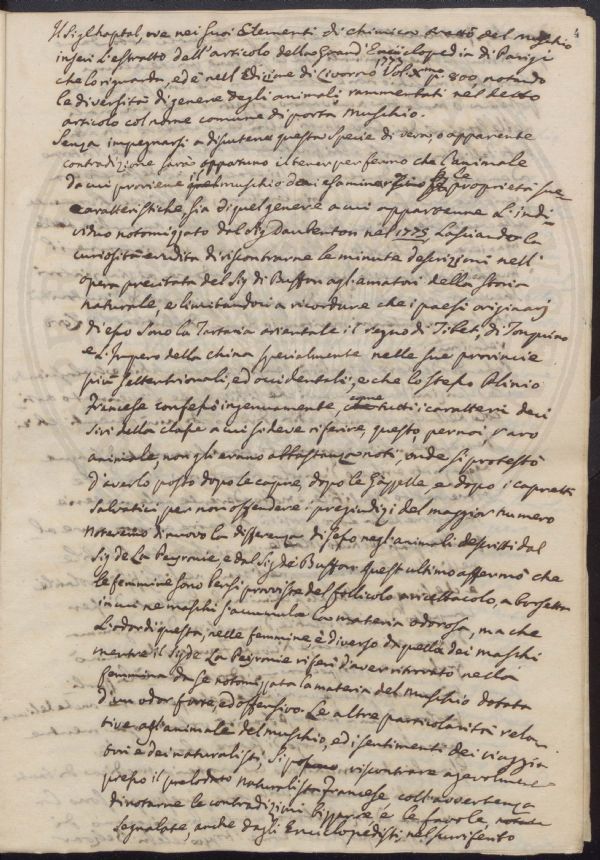 4
Il Sig.r Chaptal, ove nei suoi Elementi di chimica trattò del muschio
inserì l'estratto dell'articolo della Grand'Enciclopedia di Parigi
che lo riguarda, ed è nell'Edizione di Livorno 1777 Vol. X p. 800, notando
le diversità di genere degli animali rammentati nel detto
articolo col nome comune di porta Muschio.
Senza impegnarsi a discutere questa specie di vera, o apparente
contradizione sarà opportuno il tener per fermo che l'animale
da cui proviene il muschio de esaminar le proprietà sue
caratteristiche, sia di quel genere a cui appartenne l'indi
viduo notomizzato dal Sig. Daubenton nel 1775, Lasciando la
curiosità erudita di riscontrarne le minute descrizioni nell'
opera precitata del Sig. di Buffon agli amatori della storia
naturale, e limitandoci a ricordare che i paesi originarj
di esso sono la Tartaria orientale il regno di Tibet, di Tonquino
e l'Impero della China specialmente nelle sue provincie
più settentrionali, ed occidentali, e che lo stesso Plinio
Francese confessò ingenuamente, come tutti i caratteri deci
sivi della classe a cui si deve riferire, questo, per noi, raro
animale, non gli erano abbastanza noti, onde si protestò
d'averlo posto dopo le capre, dopo le Gazzelle, e dopo i capretti
salvatici per non offendere i pregiudizj del maggior numero
Noteremo di nuovo la differenza di sesso negli animali descritti dal
Sig. de La Peyronie, e dal Sig. de Buffon. Quest'ultimo affermò che
le femmine sono bensì provviste del follicolo, o ricettacolo, o borsetta
in cui ne' maschi s'accumula la materia odorosa, ma che
l'odor di questa, nelle femmine, è diverso da quella dei maschi
mentre il Sig. de La Peyronie riferì d'aver ritrovato nella
femmina da se notomizzata la materia del muschio dotata
d'un odor forte, ed offensivo. Le altre particolarità rela
tive all'animale del muschio, ed i sentimenti dei viaggia
tori e dei naturalisti, si possono riscontrare agevolmente
presso il prelodato naturalista francese coll'avvertenza
di notarne le contradizioni bizzarre e le favole,
segnalate, anche dagli Enciclopedisti, nel surriferito